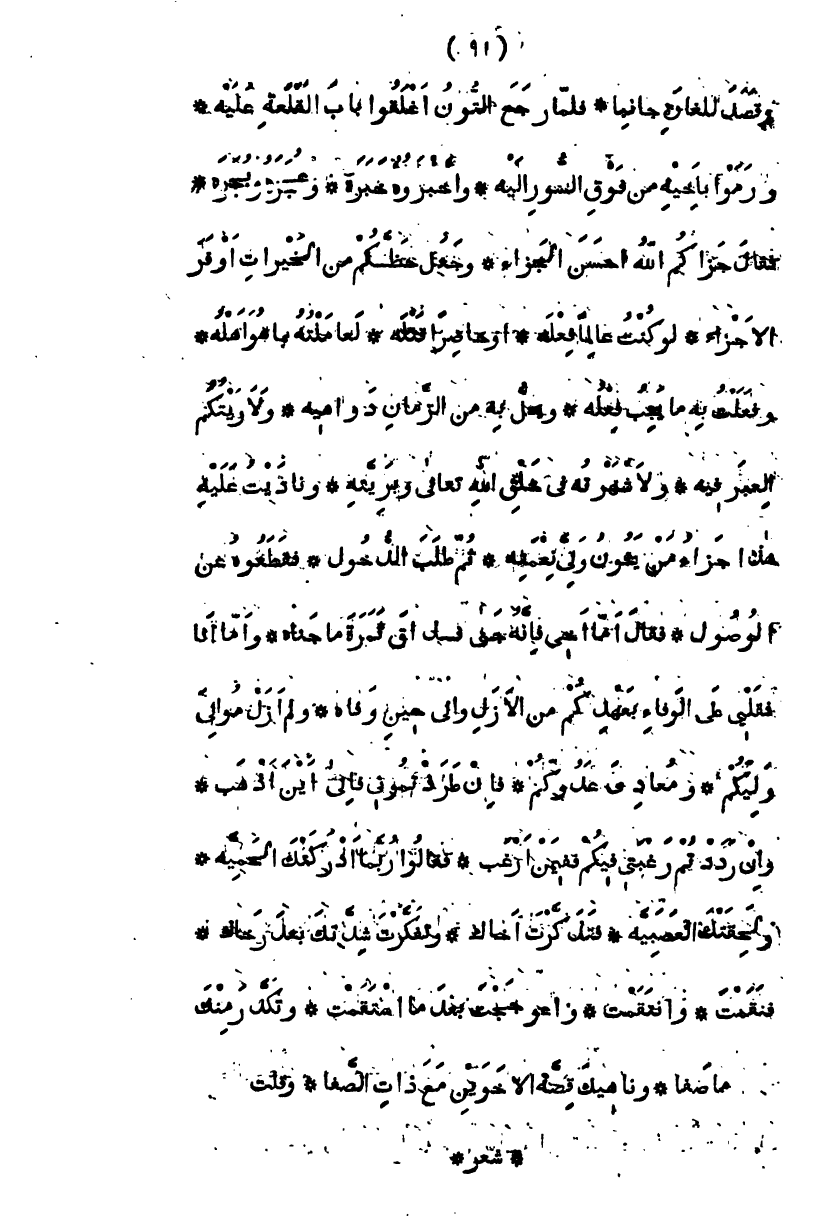 (٩١)
وقَصَدَ للغارةِ جانبا * فلمّا رجَعَ التُّونُ أغْلَقُوا بابَ القَلْعَةِ عليه *
ورَمَوْا بأخيْهِ من فَوْقِ السُّورِ اليه * واخبَروه خبَرَهُ * وعُجَرَه وبُجَره *
فقالَ جَزاكُمُ اللهُ احسَنَ الجزاءِ * وجَعَل حظّكُمْ من الخيْراتِ أوْفَرَ
الاجْزاءِ * لو كُنْتُ عالِمًا فِعْلَه * او حاضِرًا قتْلَه * لَعامَلْتُه بما هوَ اهْلُه *
وفعَلْتُ بِه ما يجِبُ فِعْلُه * وحلَّ به من الزَّمانِ دَواهِيه * ولَأَرَيْتُكُم
العِبَرَ فيه * ولَأَشهَرْتُه فى خَلْقِ اللهِ تعالى وبَرِيَّتِه * ونادَيْتُ عَلَيْهِ
هٰذا جَزاءُ مَنْ يخُونُ ولِيَّ نِعْمَتِه * ثُمّ طَلَبَ الدُّخُول * فقَطَعُوه عن
الوُصُول * فقالَ أمّا أخِى فإنَّهُ جَنى فسد اقَ ثمَرَةَ ما جَناه * وأمّا أنا
فقَلْبِى على الوَفاءِ بعَهْدِكُمْ من الأزَلِ والى حِينِ وَفاه * ولم أزَلْ مُوالِىَ
وَلِيِّكُمْ * ومُعادِىَ عَدُوِّكُمْ * فإنْ طَرَدْتُمُوني فإلى أيْنَ اذْهَب *
وإنْ رَدَدْتُمْ رَغْبَتِي فيكُمْ ففِيمَنْ أرْغَب * فقالُوا رُبَّما أدْرَكَتْكَ الحَمِيَّه *
ولحِقَتْكَ العَصَبِيَّه * فتَذَكَّرْتَ أخاك * وتفَكَّرْتَ شِدَّتَكَ بعْدَ رَخاك *
فنَقَمْتَ * وانتَقَمْت * واعْوَجَجْتَ بعْدَ ما اسْتَقَمْت * وتكَدَّرَ مِنْكَ
ما صَفا * وناهِيكَ قِصَّة الاخَوَيْنِ مَعَ ذاتِ الصَّفا * وقلت
* شعر *